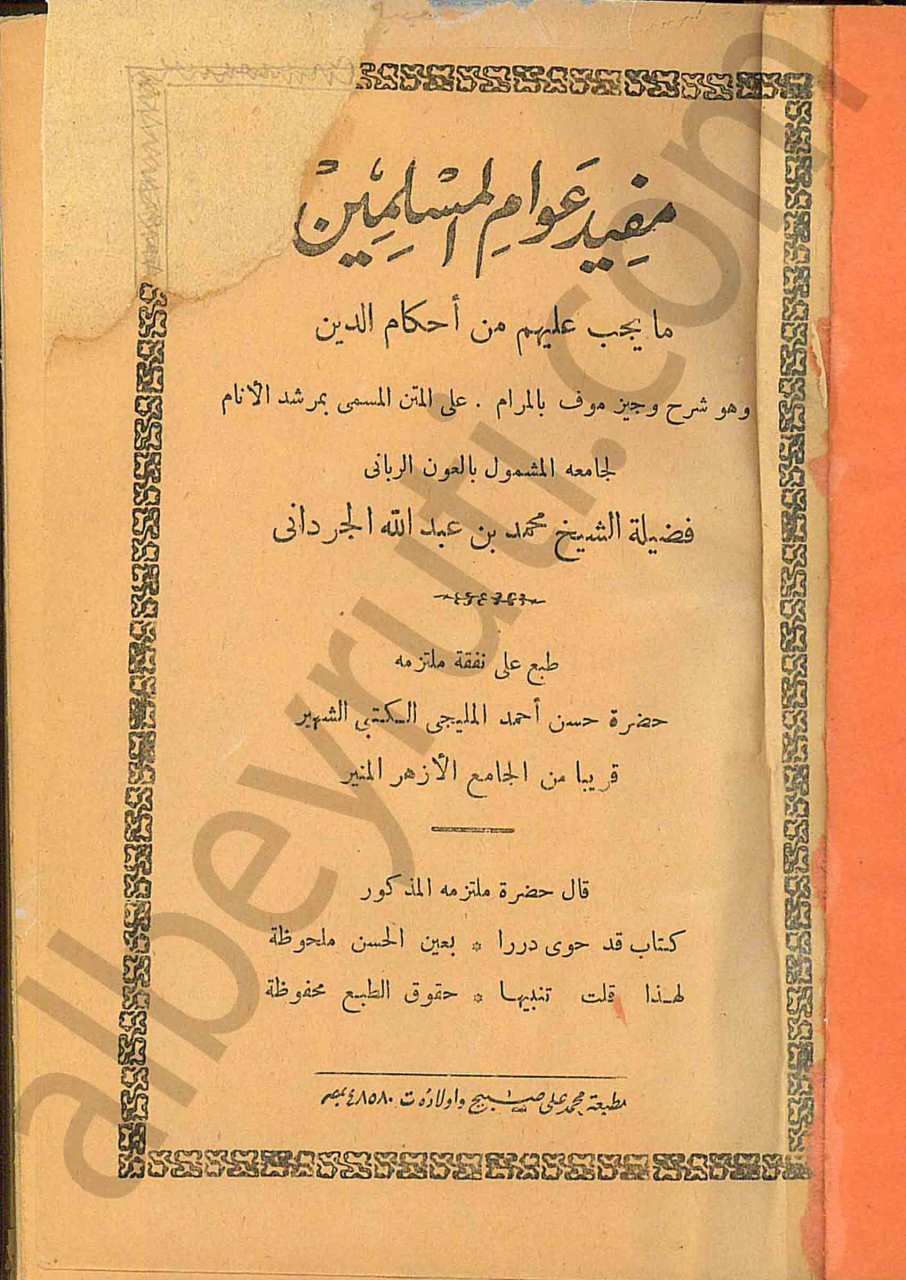 مفيد عوام المسلمين
ما يجب عليهم من أحكام الدين
وهو شرح وجيز موف بالمرام . على المتن المسمى بمرشد الأنام
لجامعه المشمول بالعون الربانى
فضيلة الشيخ محمد بن عبد الله الجردانى
طبع على نفقة ملتزمه
حضرة حسن أحمد المليجى الكتبي الشهير
قريبا من الجامع الأزهر المنير
قال حضرة ملتزمه المذكور
كتاب قد حوى دررا * بعين الحسن ملحوظة
لهذا قلت تنبيها * حقوق الطبع محفوظة
مطبعة محمد على صبيح واولاده ت ٤٨٥٨٠ بمصر
albeyruti.com